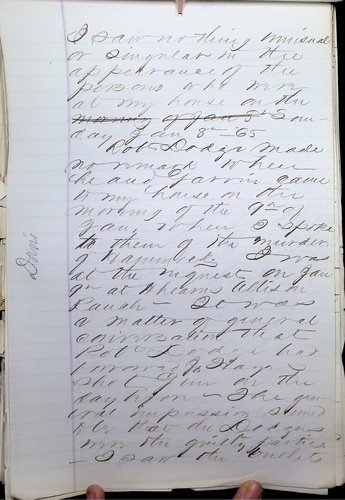 I saw nothing unusual
or singular in the
appearance of the
persons who were
at my house on the
morning of Jan 8th Sun-
day Jan 8th 65
Robt Dodge made
no remark when
he and came
to my house on the
morning of the 9th of
Jan, when I spoke
to them of the murder
of Hammock. I was
at the inquest on Jan
9th at Allison
It was
a matter of general
conversation that
Robt Dodge had
shot gun on the
day before - The gen-
eral impression seemed
to be that the Dodges
were the guilty parties
- I saw the bullets
Davis